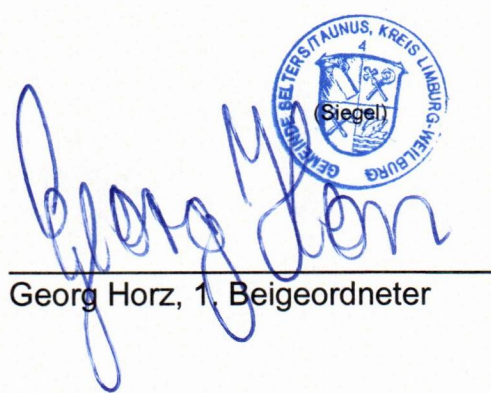 GEMEINDE SELTERS/TAUNUS, KREIS LIMBURG-WEILBURG
4
(Siegel)
Georg Horz
Georg Horz, 1. Beigeordneter